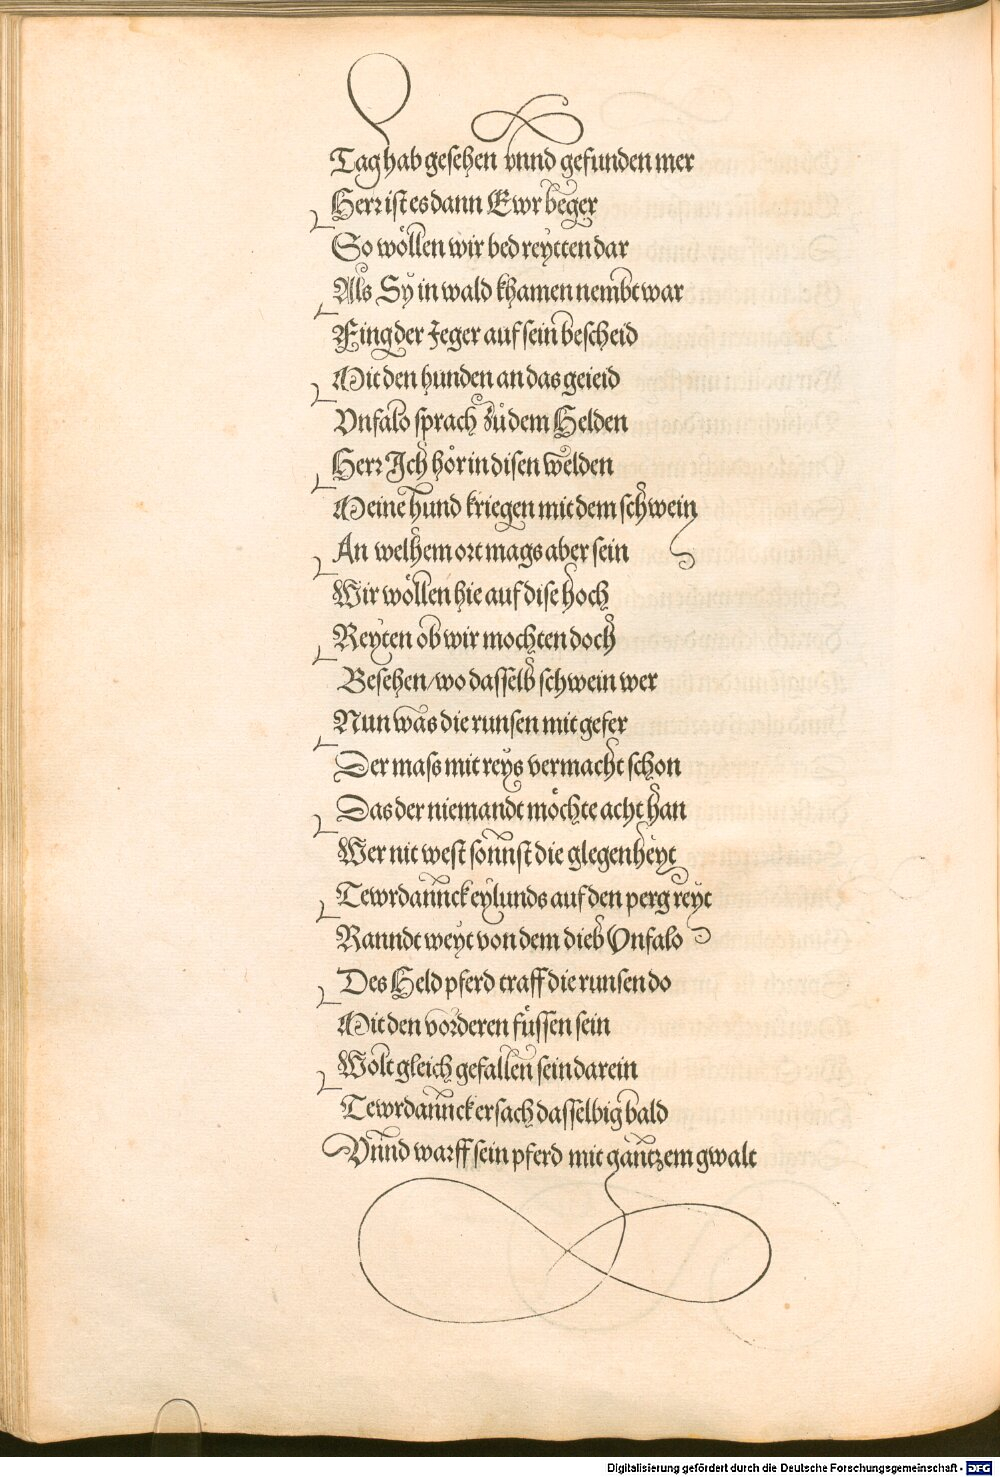 Tag hab gesehen vnnd gefunden mer
Herr ist es dann Ewr beger
So wöllen wir bed reytten dar
Als Sy in wald khamen nembt war
Fing der Jeger auf sein bescheid
Mit den hunden an das geieid
Vnfalo sprach zů dem Helden
Herr Jch hör in disen welden
Meine hund kriegen mit dem schwein
An welhem ort mags aber sein
Wir wöllen hie auf dise hoch
Reyten ob wir mochten doch
Besehen/wo dasselb schwein wer
Nun was die runsen mit gefer
Der mass mit reys vermacht schon
Das der niemandt möchte acht han
Wer nit west sonnst die glegenheyt
Tewrdannck eylunds auf den perg reyt
Ranndt weyt von dem dieb Vnfalo
Des Held pferd traff die runsen do
Mit den vorderen füssen sein
Wolt gleich gefallen sein darein
Tewrdannck ersach dasselbig bald
Vnnd warff sein pferd mit gantzem gwalt
Digitalisierung gefördert durch die Deutsche Forschungsgemeinschaft - DFG